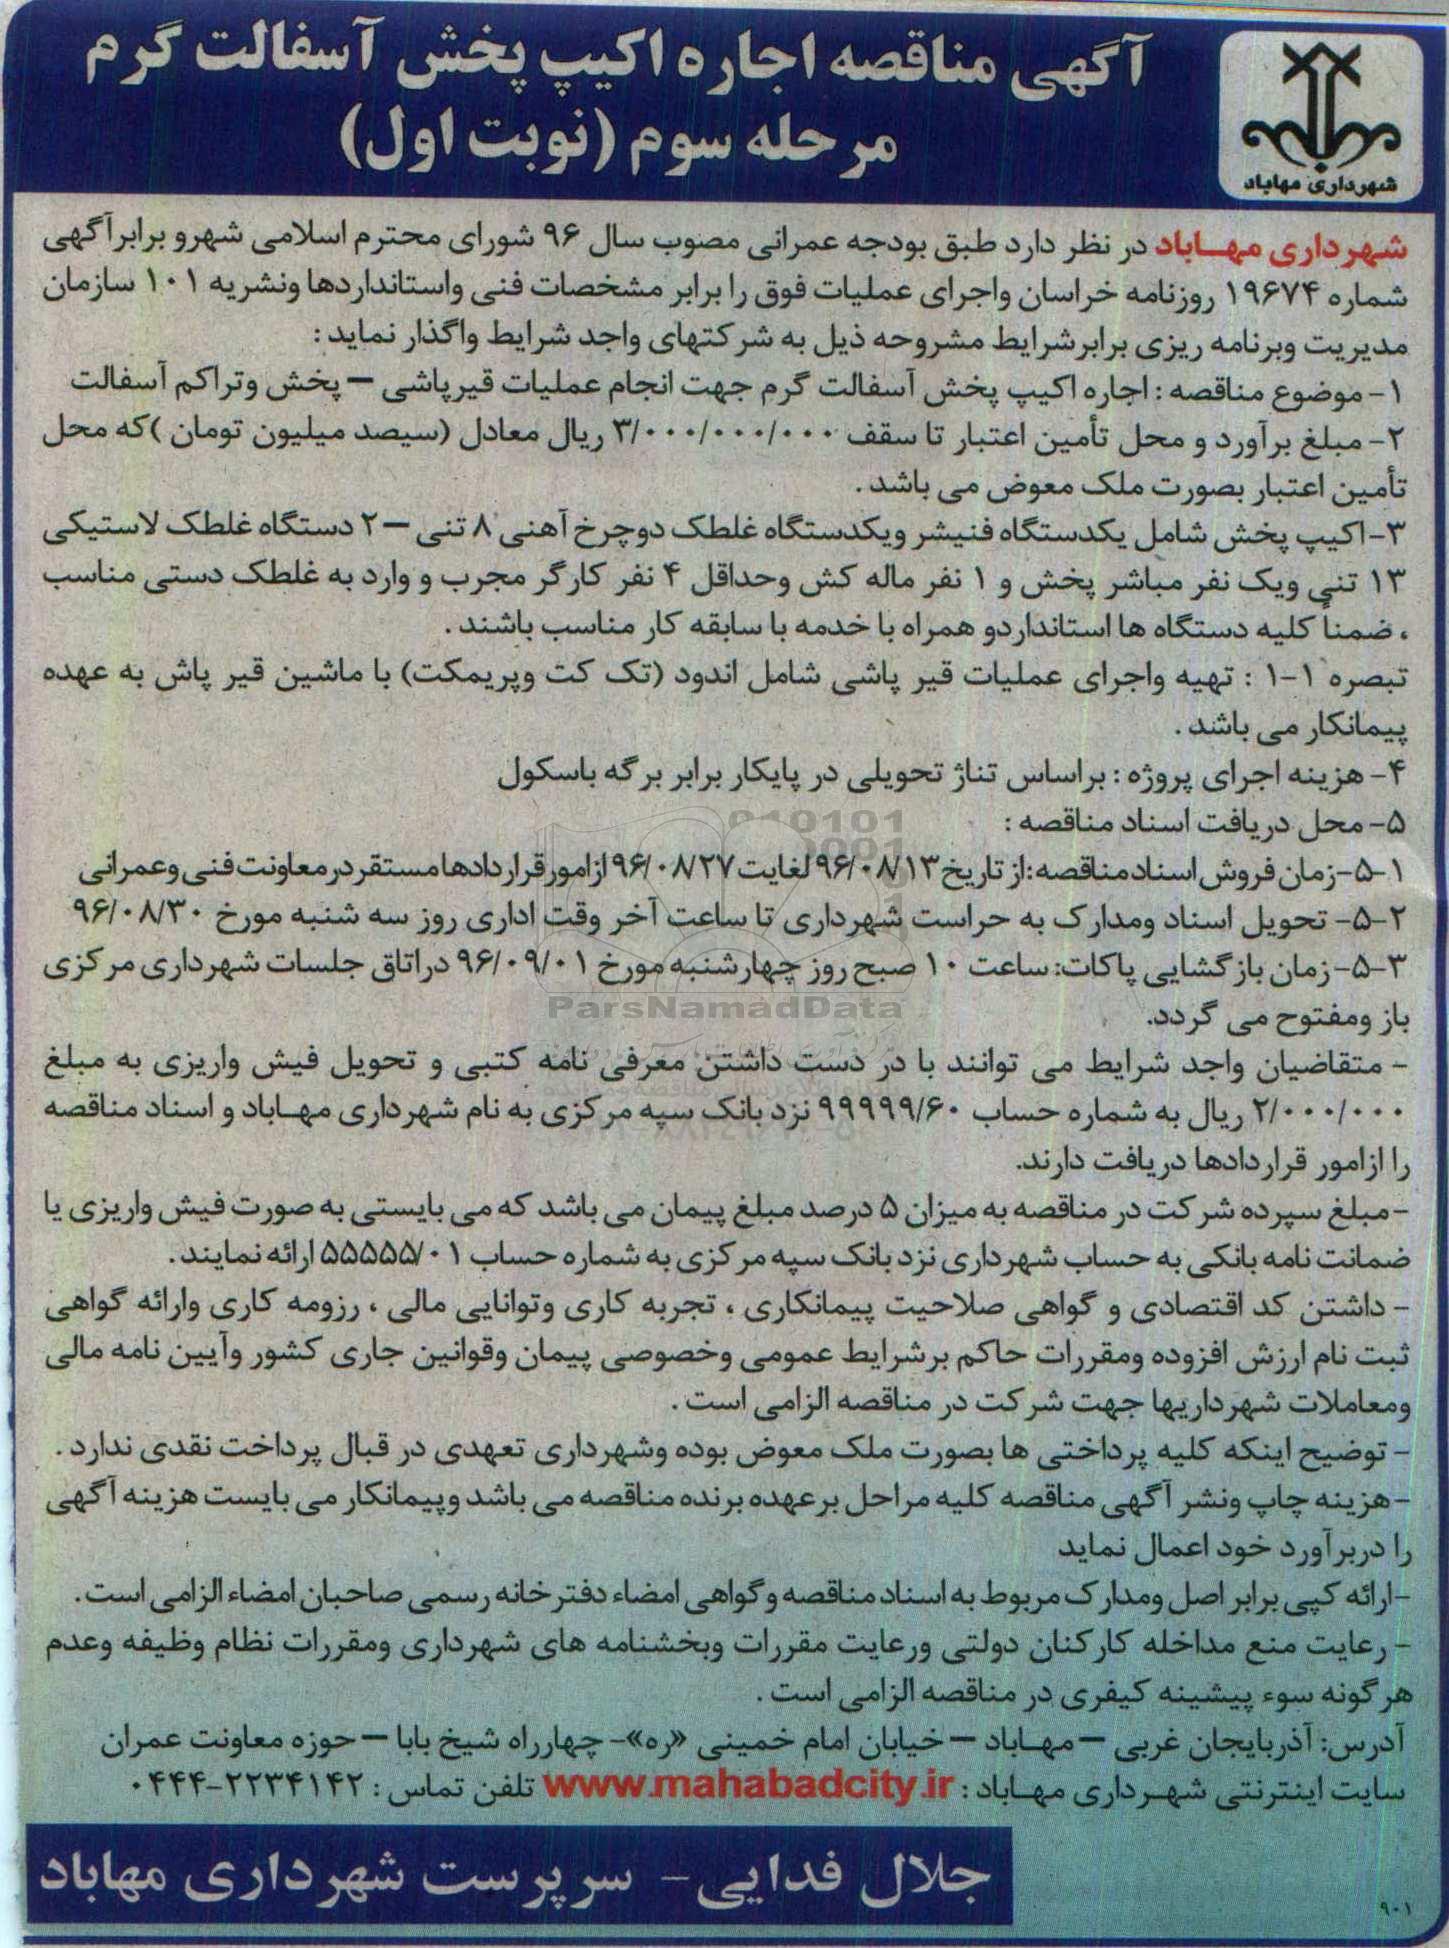 آگهی مناقصه اجاره اکیپ پخش آسفالت گرم
مرحله سوم (نوبت اول)
شهرداری مهاباد
شهرداری مهـاباد در نظر دارد طبق بودجه عمرانی مصوب سال ۹۶ شورای محترم اسلامی شهرو برابرآگهی
شماره ۱۹۶۷۴ روزنامه خراسان واجرای عملیات فوق را برابر مشخصات فنی واستانداردها ونشریه ۱۰۱ سازمان
مدیریت وبرنامه ریزی برابرشرایط مشروحه ذیل به شرکتهای واجد شرایط واگذار نماید :
۱- موضوع مناقصه : اجاره اکیپ پخش آسفالت گرم جهت انجام عملیات قیرپاشی – پخش وتراکم آسفالت
۲- مبلغ برآورد و محل تأمین اعتبار تا سقف ۳/۰۰۰/۰۰۰/۰۰۰ ریال معادل (سیصد میلیون تومان )که محل
تأمین اعتبار بصورت ملک معوض می باشد .
۳-اکیپ پخش شامل یکدستگاه فنیشر ویکدستگاه غلطک دوچرخ آهنی ۸ تنی – ۲ دستگاه غلطک لاستیکی
۱۳ تنی ویک نفر مباشر پخش و ۱ نفر ماله کش وحداقل ۴ نفر کارگر مجرب و وارد به غلطک دستی مناسب
، ضمناً کلیه دستگاه ها استانداردو همراه با خدمه با سابقه کار مناسب باشند .
تبصره ۱-۱ : تهیه واجرای عملیات قیر پاشی شامل اندود (تک کت وپریمکت) با ماشین قیر پاش به عهده
پیمانکار می باشد .
۴- هزینه اجرای پروژه : براساس تناژ تحویلی در پایکار برابر برگه باسکول
۵- محل دریافت اسناد مناقصه :
۵-۱-زمان فروش اسناد مناقصه:از تاریخ ۹۶/۰۸/۱۳ لغایت ۹۶/۰۸/۲۷ ازامورقراردادها مستقر در معاونت فنی و عمرانی
۵-۲- تحویل اسناد ومدارک به حراست شهرداری تا ساعت آخر وقت اداری روز سه شنبه مورخ ۹۶/۰۸/۳۰
۵-۳-زمان بازگشایی پاکات: ساعت ۱۰ صبح روز چهارشنبه مورخ ۹۶/۰۹/۰۱ دراتاق جلسات شهرداری مرکزی
ParsNamadData
باز ومفتوح می گردد.
- متقاضیان واجد شرایط می توانند با در دست داشتن معرفی نامه کتبی و تحویل فیش واریزی به مبلغ
۲/۰۰۰/۰۰۰ ریال به شماره حساب ۹۹۹۹۹/۶۰ نزد بانک سپه مرکزی به نام شهرداری مهـاباد و اسناد مناقصه
را ازامور قراردادها دریافت دارند.
-مبلغ سپرده شرکت در مناقصه به میزان ۵ درصد مبلغ پیمان می باشد که می بایستی به صورت فیش واریزی یا
ضمانت نامه بانکی به حساب شهرداری نزد بانک سپه مرکزی به شماره حساب ۵۵۵۵۵/۰۱ ارائه نمایند .
- داشتن کد اقتصادی و گواهی صلاحیت پیمانکاری ، تجربه کاری وتوانایی مالی ، رزومه کاری وارائه گواهی
ثبت نام ارزش افزوده ومقررات حاکم برشرایط عمومی وخصوصی پیمان وقوانین جاری کشور وآیین نامه مالی
ومعاملات شهرداریها جهت شرکت در مناقصه الزامی است .
- توضیح اینکه کلیه پرداختی ها بصورت ملک معوض بوده وشهرداری تعهدی در قبال پرداخت نقدی ندارد .
-هزینه چاپ ونشر آگهی مناقصه کلیه مراحل برعهده برنده مناقصه می باشد وپیمانکار می بایست هزینه آگهی
را دربرآورد خود اعمال نماید
-ارائه کپی برابر اصل ومدارک مربوط به اسناد مناقصه و گواهی امضاء دفترخانه رسمی صاحبان امضاء الزامی است .
- رعایت منع مداخله کارکنان دولتی ورعایت مقررات وبخشنامه های شهرداری ومقررات نظام وظیفه وعدم
هرگونه سوء پیشینه کیفری در مناقصه الزامی است .
آدرس: آذربایجان غربی – مهـاباد – خیابان امام خمینی «ره»- چهارراه شیخ بابا – حوزه معاونت عمران
سایت اینترنتی شهـرداری مهـاباد : www.mahabadcity.ir تلفن تماس : ۲۲۳۴۱۴۲-۰۴۴۴
جلال فدایی- سرپرست شهرداری مهاباد
۹۰۱